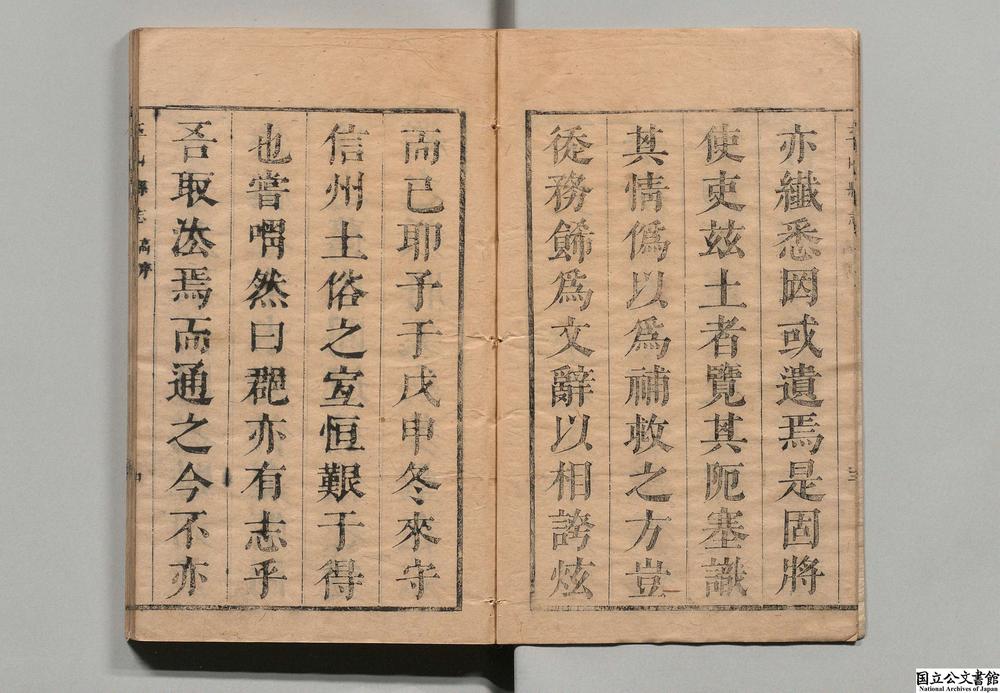 亦纖悉因或遺焉是固將
使吏玆土者覽其阨塞識
其情僞以爲補救之方豈
徒務飾爲文辭以相誇炫
而已耶予于戊申冬來守
信州土俗之宜恒艱于得
也嘗喟然曰郡亦有志乎
吾取法焉而通之今不亦
山縣志 高序
国立公文書館
National Archives of Japan